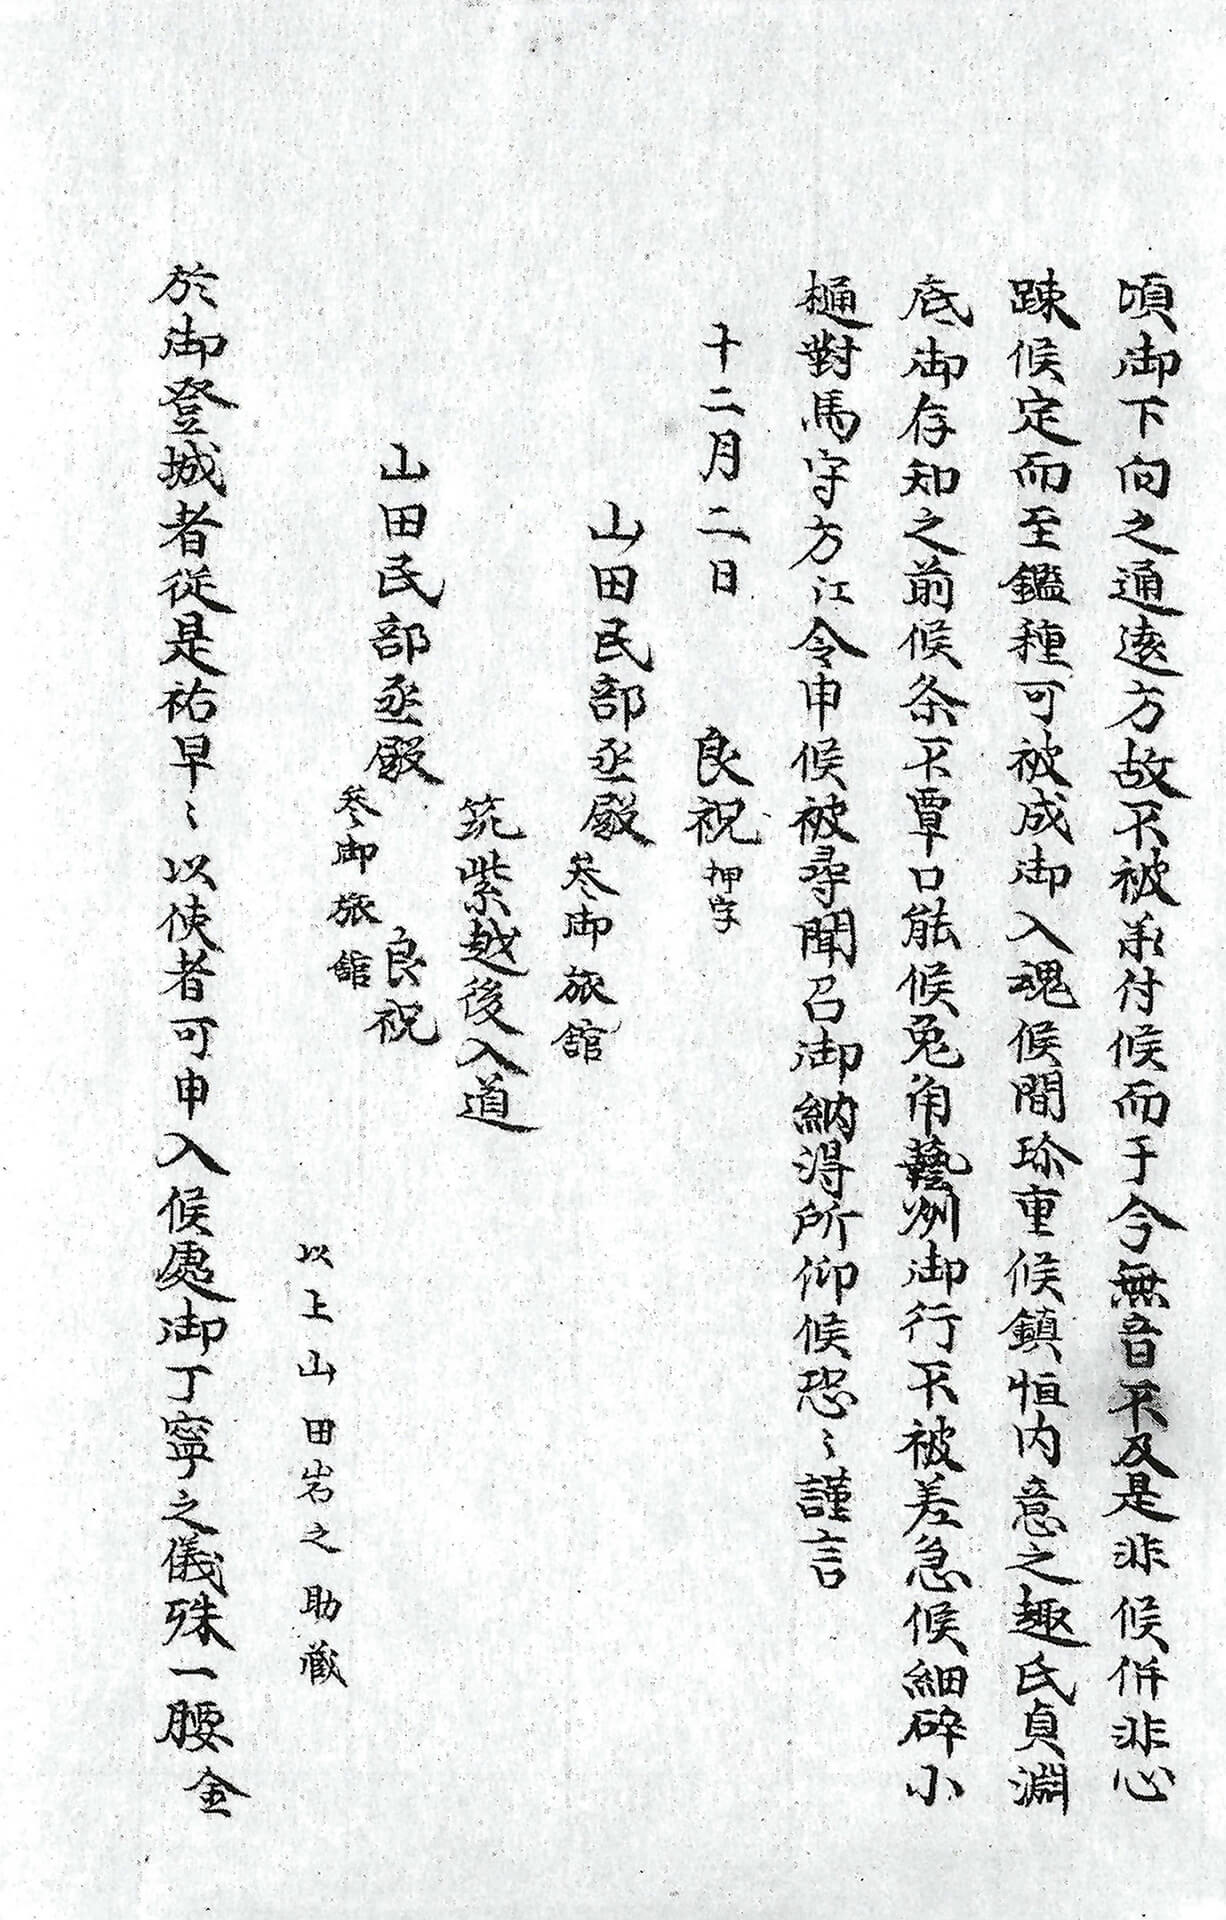 頃御下向之通遠方故不被承付候而于今無音不及是非候併非心
踈候定而至鑑種可被成御入魂候間珎重候鎮恒内意之趣氏貞淵
底御存知之前候条不覃口能候兎角藝州御行不被差急候細砕小
樋對馬守方江令申候被尋聞召御納得所仰候恐〻謹言
十二月二日　良祝押字
山田民部丞殿参御旅舘
筑紫越後入道
良祝
山田民部丞殿参御旅舘
以上山田岩之助蔵
於御登城者従是祐早〻以使者可申入候處御丁寧之儀殊一腰金